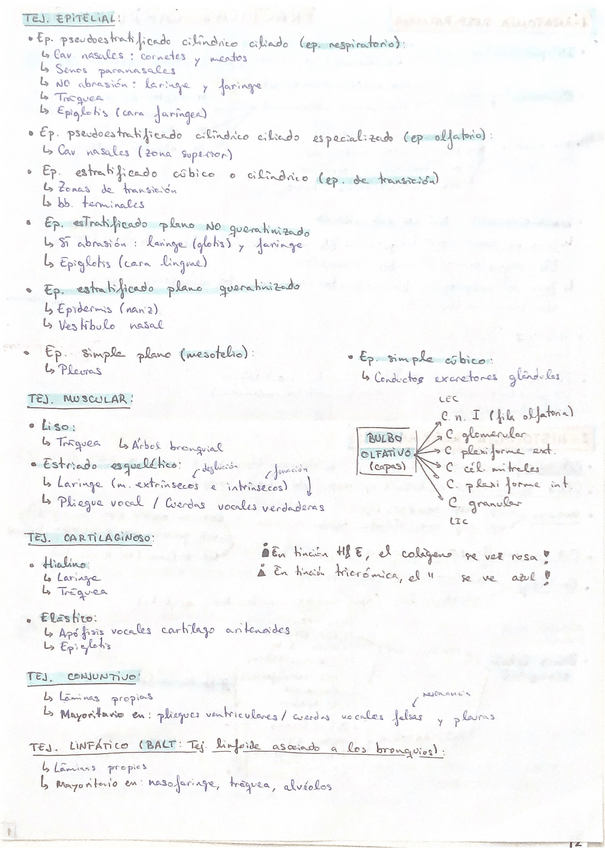 TEJ. EPITELIAL:
• Ep. pseudoestratificado cilíndrico ciliado (ep. respiratorio):
↳ Cav nasales: cornetes y meatos
↳ Senos paranasales
↳ NO abrasión: laringe y faringe
↳ Tráquea
↳ Epiglotis (cara faríngea)
• Ep. pseudoestratificado cilíndrico ciliado especializado (ep olfatorio):
↳ Cav. nasales (zona superior)
• Ep. estratificado cúbico o cilíndrico (ep. de transición)
↳ Zonas de transición
↳ bb. terminales
• Ep. estratificado plano NO queratinizado
↳ Sí abrasión: laringe (glotis) y faringe
↳ Epiglotis (cara lingual)
• Ep. estratificado plano queratinizado
↳ Epidermis (nariz)
↳ Vestíbulo nasal
• Ep. simple plano (mesotelio):
↳ Pleuras
• Ep. simple cúbico:
↳ Conductos excretores glándulas
TEJ. MUSCULAR:
• Liso:
↳ Tráquea ↳ Árbol bronquial
• Estriado esquelético: deglución fonación
↳ Laringe (m. extrínsecos e intrínsecos)
↳ Pliegue vocal / Cuerdas vocales verdaderas
BULBO
OLFATIVO
(capas)
LEC
C. n. I (fila olfatoria)
C glomerular
C plexiforme ext.
C cél. mitrales
C. plexiforme int
C granular
LIC
TEJ. CARTILAGINOSO:
• Hialino
↳ Laringe
↳ Tráquea
• Elástico:
↳ Apófisis vocales cartílago aritenoides
↳ Epiglotis
¡En tinción H&E, el colágeno se ve rosa!
¡En tinción tricrómica, el " se ve azul!
TEJ. CONJUNTIVO:
↳ Láminas propias
resonancia
↳ Mayoritario en: pliegues ventriculares / cuerdas vocales falsas y pleuras
TEJ. LINFÁTICO (BALT: Tej. linfoide asociado a los bronquios):
↳ Láminas propias
↳ Mayoritario en: nasofaringe, tráquea, alvéolos
12